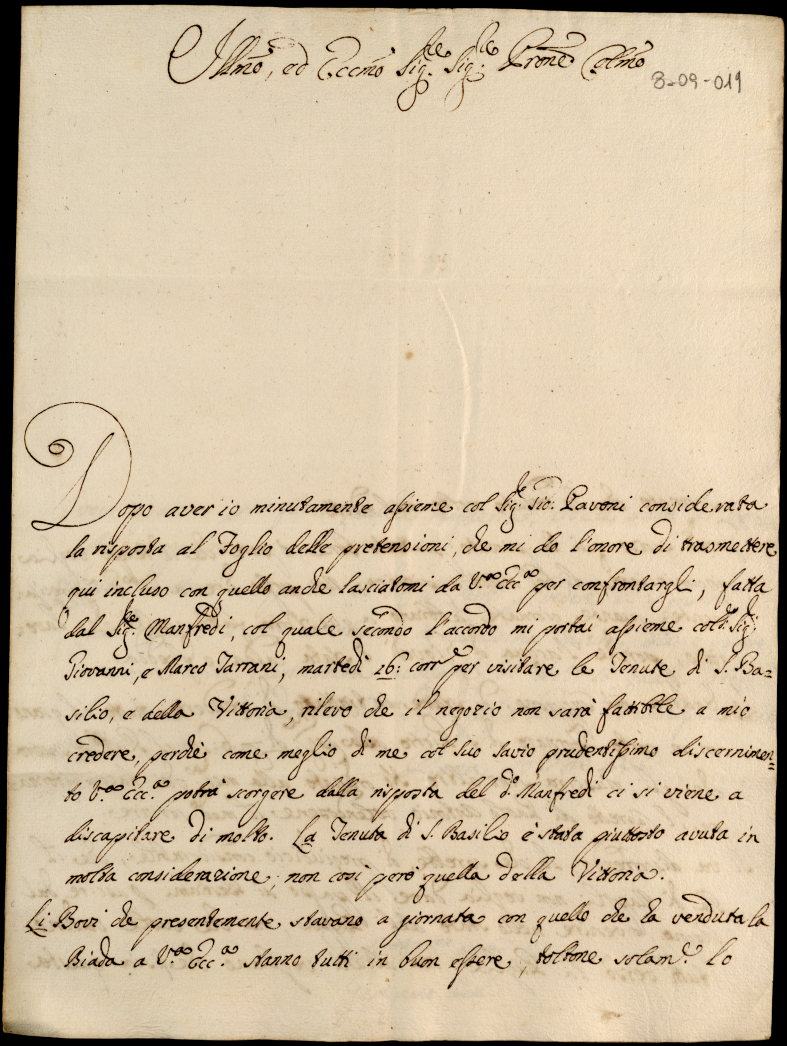 Illmo, ed Eccmo Sig.re Sig.re Prone Colmo
3-09-019
Dopo aver io minutamente assieme col Sig.re Gio: Pavoni considerata
la risposta al Foglio delle pretensioni, che mi do l'onore di trasmettere
qui incluso con quello anche lasciatomi da V.ra Ecc.za per confrontargli, fatta
dal Sig.re Manfredi, col quale secondo l'accordo mi portai assieme colli Sig.ri
Giovanni, e Marco Tarrani, martedì 26: corr.e per visitare le Tenute di S. Ba=
silio, e della Vittoria, rilevo che il negozio non sarà fattibile a mio
credere, perchè come meglio di me col suo savio prudentissimo discernimen=
to V.ra Ecc.za potrà scorgere dalla risposta del d.o Manfredi ci si viene a
discapitare di molto. La Tenuta di S. Basilio è stata piuttosto avuta in
molta considerazione, non così però quella della Vittoria.
Li Bovi che presentemente stavano a giornata con quello che ha venduta la
Biada a V.ra Ecc.za stanno tutti in buon essere, toltone solam.e lo